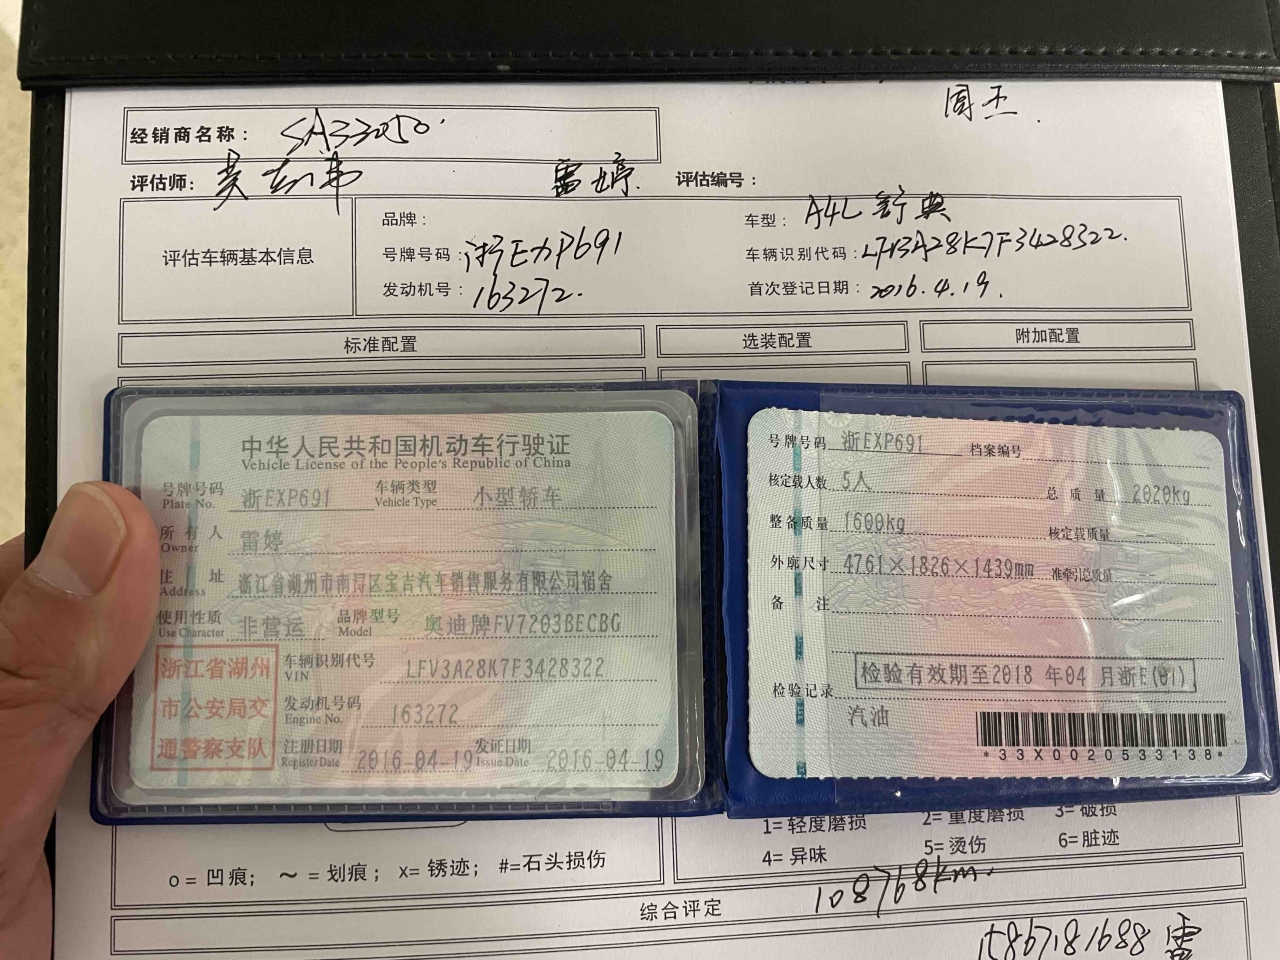 周丕
经销商名称： SA33050
评估师： 雷婷 评估编号：
评估车辆基本信息
品牌： 车型： A4L 舒典
号牌号码： 浙EXP691 车辆识别代码： LFV3A28K7F3428322
发动机号： 163272 首次登记日期： 2016.4.19
标准配置 选装配置 附加配置
中华人民共和国机动车行驶证
Vehicle License of the People's Republic of China
号牌号码 浙EXP691 车辆类型 小型轿车
Plate No. Vehicle Type
所有人 雷婷
Owner
住址 浙江省湖州市南浔区宝吉汽车销售服务有限公司宿舍
Address
使用性质 非营运 品牌型号 奥迪牌FV7203BECBG
Use Character Model
浙江省湖州
市公安局交
通警察支队
车辆识别代号 LFV3A28K7F3428322
VIN
发动机号码 163272
Engine No.
注册日期 2016-04-19 发证日期 2016-04-19
Register Date Issue Date
号牌号码 浙EXP691 档案编号
核定载人数 5人 总质量 2020kg
整备质量 1600kg 核定载质量 --
外廓尺寸 4761×1826×1439mm 准牵引总质量 --
备注
检验有效期至2018 年04 月浙E(01)
检验记录
汽油
*33X0020533138*
1= 轻度磨损 2= 重度磨损 3= 破损
4= 异味 5= 烫伤 6= 脏迹
o = 凹痕； ～ = 划痕； x= 锈迹； #=石头损伤
综合评定 108768km.
15867181688 雷